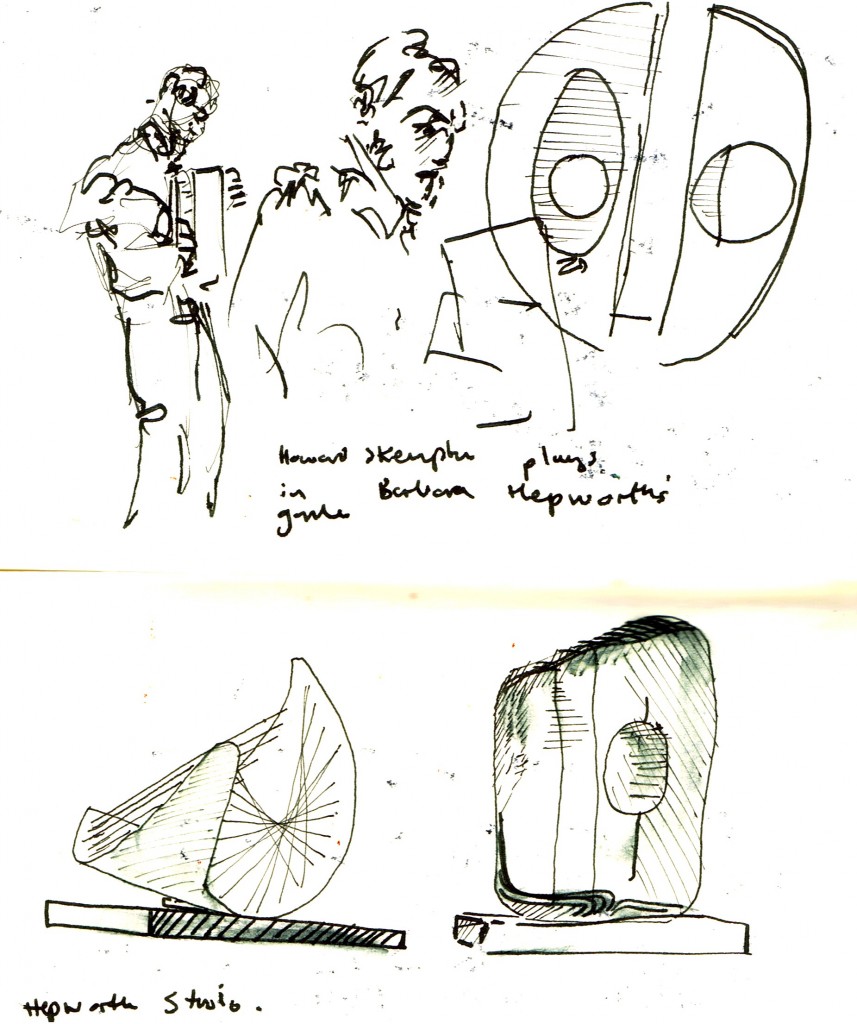 Howard Skempton plays
in Barbara Hepworth's
garden
Hepworth Studio.